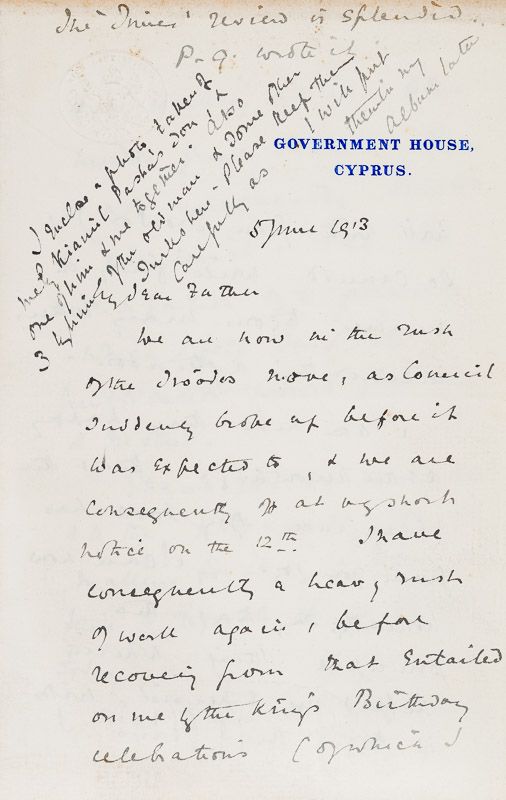 The Times' review is splendid.
P-G. wrote it
I enclose a photo taken of
me & Kiamil Pasha's son &
one of him & me together. Also
3 by him of the old man & some other
Turks here - Please keep them
carefully as I will put
them in my
album later
GOVERNMENT HOUSE,
CYPRUS.
5 June 1913
My dear Father
We are now in the rush
of the Troodos move, as Council
suddenly broke up before it
was expected to, & we are
consequently off at very short
notice on the 12th. I have
consequently a heavy rush
of work again, before
recovering from that entailed
on me by the King's Birthday
celebrations (of which I